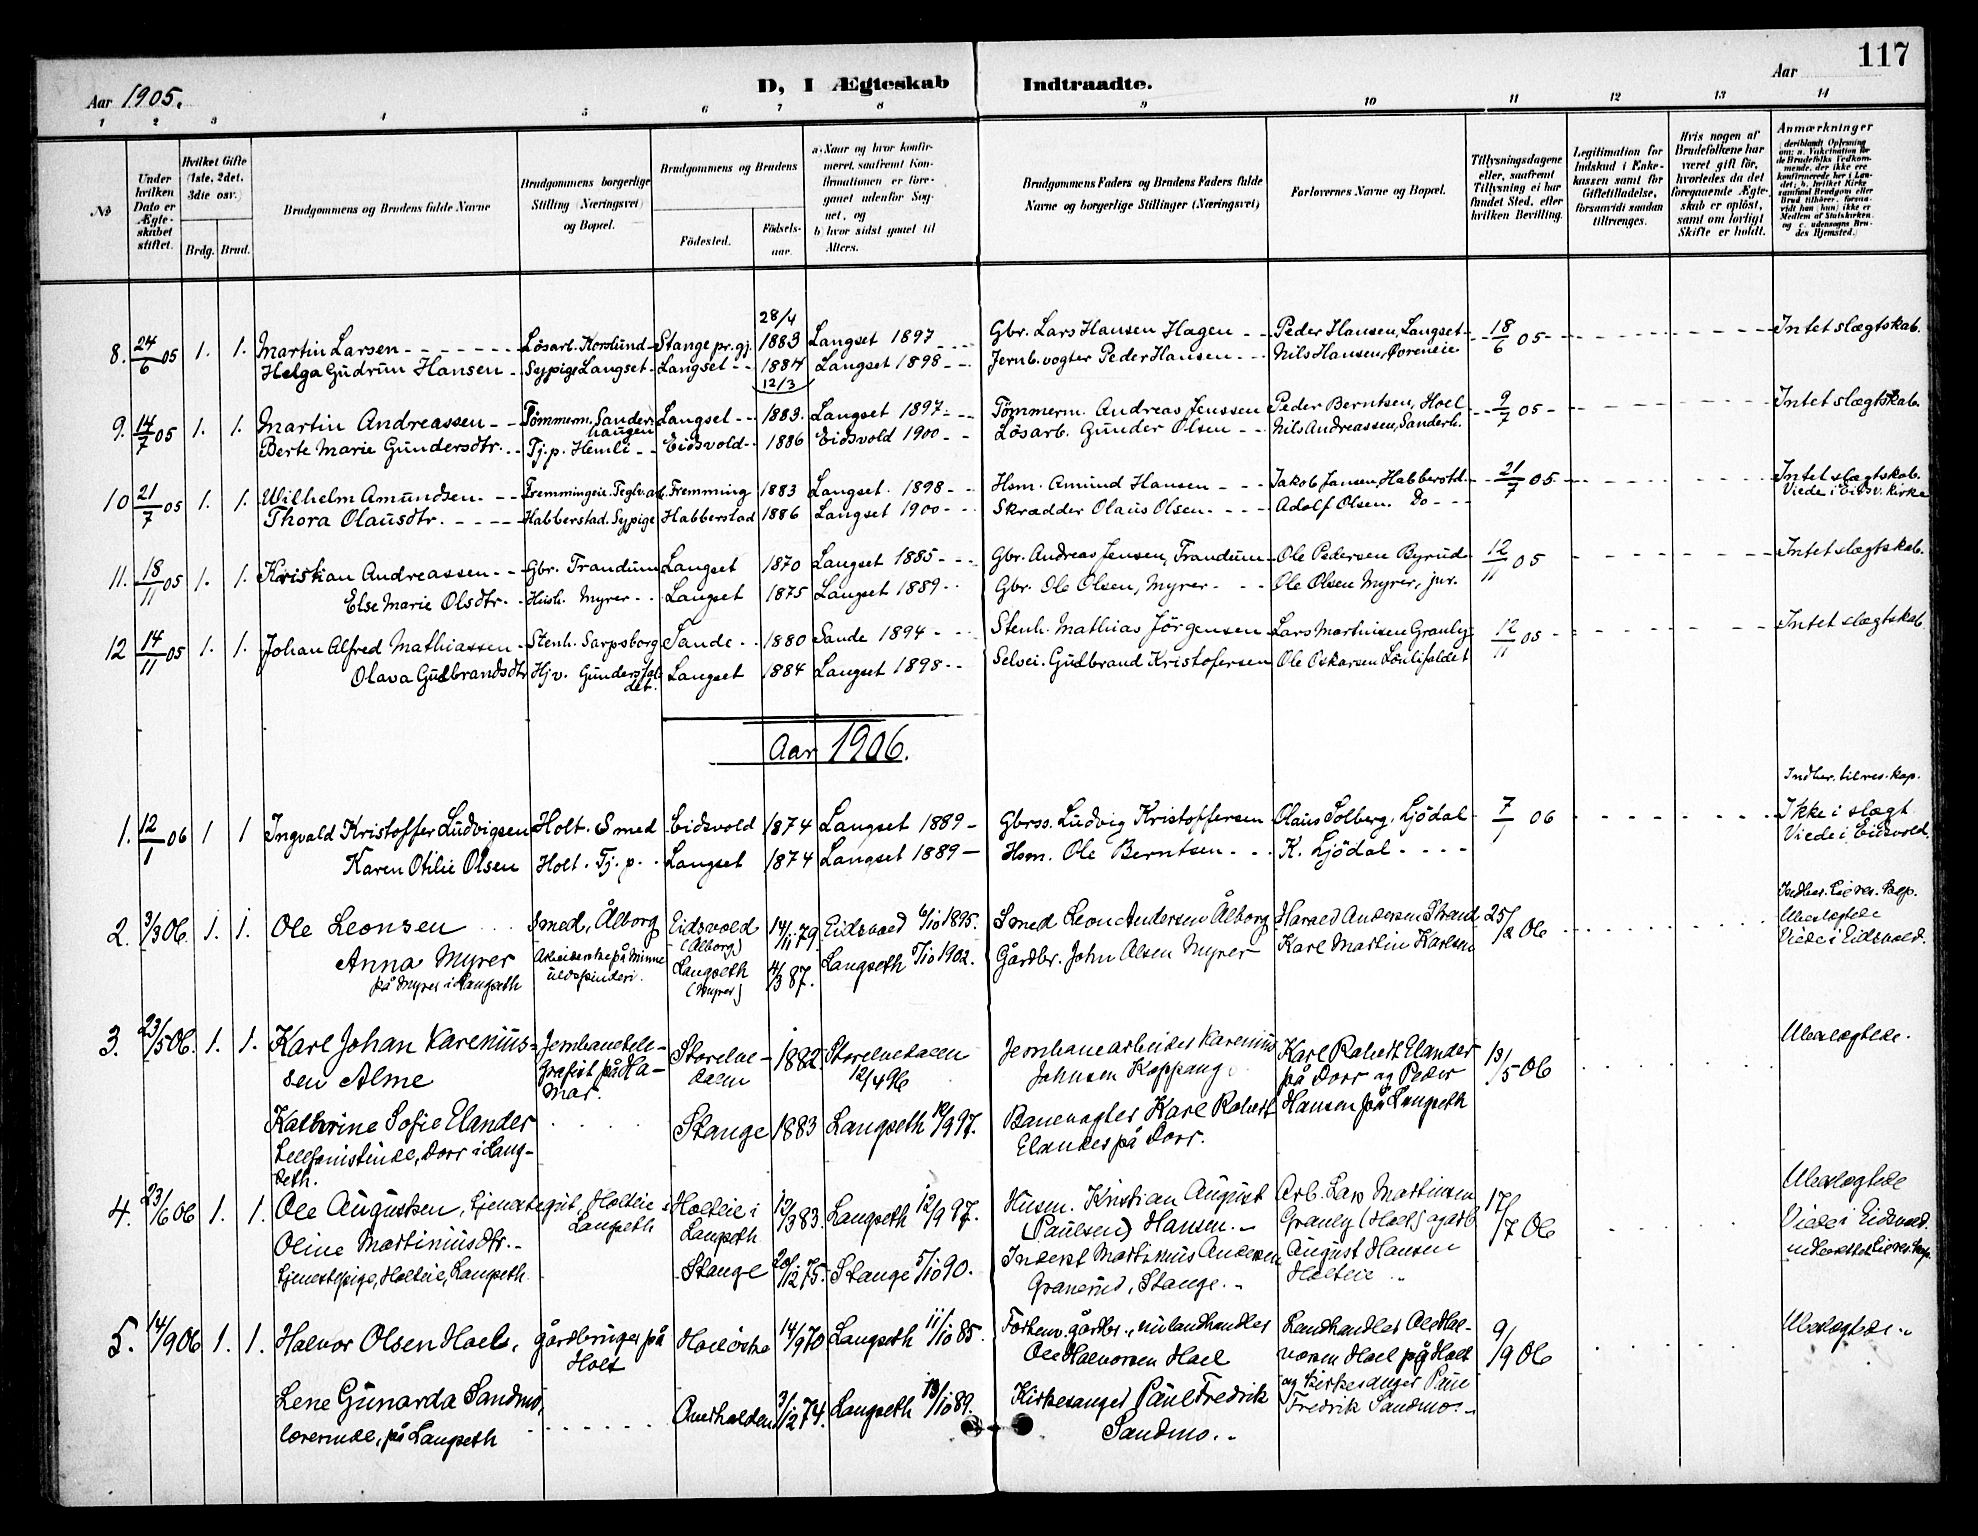 117
Aar 1905.
D, I Ægteskab Indtraadte.
Aar
1 2 3 4 5 6 7 8 9 10 11 12 13 14
No
Under hvilken Dato er Ægteskabet stiftet.
Hvilket Gifte (1ste, 2det, 3die osv.)
Brdg. Brud.
Brudgommens og Brudens fulde Navne
Brudgommens borgerlige Stilling (Næringsvei) og Bopæl.
Brudgommens og Brudens
Fødested. Fødselsaar.
a) Naar og hvor konfirmeret, saafremt Konfirmationen er foregaaet udenfor Sognet, og
b) hvor sidst gaaet til Alters.
Brudgommens Faders og Brudens Faders fulde Navne og borgerlige Stillinger (Næringsvei)
Forlovernes Navne og Bopæl.
Tillysningsdagene eller, saafremt Tillysning ei har fundet Sted, efter hvilken Bevilling.
Legitimation for Indskud i Enkekassen samt for Giftetilladelse, forsaavidt saadan tiltrænges.
Hvis nogen af Brudefolkene har været gift før, hvorledes da det foregaaende Ægteskab er opløst, samt om lovligt Skifte er holdt.
Anmærkninger
28/4
8. 24/6 05 1. 1. Martin Larsen Løsarb. Korslund Stange pr.gj. 1883 Langset 1897 Gbr. Lars Hansen Hagen Peder Hansen, Langset 18/6 05 Intet slægtskab.
Helga Gudrun Hansen Sypige Langset Langset 1884 Langset 1898 Jernb.vogter Peder Hansen Nils Hansen,
12/3
9. 14/7 05 1. 1. Martin Andreassen Tømmerm. Sanderhaugen Langset 1883. Langset 1897 Tømmerm. Andreas Jenssen Peder Berntsen, Hoel 9/7 05 Intet slægtskab.
Berte Marie Gundersdtr. Tj.p. Hemli Eidsvold 1886 Eidsvold 1900 Løsarb. Gunder Olsen Nils Andreassen, Sanderh.
10 21/7 05 1. 1. Wilhelm Amundsen Fremmingeie. Teglv.arb. Fremming 1883 Langset. 1898 Hsm. Amund Hansen Jakob Jansen, Habberstd. 21/7 05 Intet slægtskab.
Viede i Eidsv. kirke
Thora Olausdtr. Habberstad. Sypige Habberstad 1886 Langset 1900 Skrædder Olaus Olsen Adolf Olsen. Do
11. 18/11 05 1. 1. Kristian Andreassen Gbr. Trandum Langset 1870 Langset 1885 Gbr. Andreas Jensen, Trandum Ole Pedersen Byrud 12/11 05 Intet slægtskab.
Else Marie Olsdtr. Hush. Myrer Langset 1875 Langset 1889 Gbr. Ole Olsen, Myrer Ole Olsen Myrer, jur.
12 14/11 05 1. 1. Johan Alfred Mathiassen Stenh. Sarpsborg Sande 1880 Sande 1894 Stenh. Mathias Jørgensen Lars Martinsen Granly 12/11 05 Intet slægtskab
Olava Gudbrandsdtr Hjv. Gundersfaldet. Langset 1884 Langset 1898 Selvei. Gudbrand Kristofersen Ole Oskarsen
Aar 1906.
Indber. til res. kap.
1. 12/1 06 1 1 Ingvald Kristoffer Ludvigsen Holt. Smed Eidsvold 1874 Langset 1889 Gbrss. Ludvig Kristoffersen Olaus Solberg, Ljødal 7/1 06 Ikke i slægt
Viede i Eidsvold.
Karen Otilie Olsen Holt. Tj. p. Langset 1874 Langset 1889 Hsm. Ole Berntsen K. Ljødal
2. 3/3 06. 1. 1. Ole Leonsen Smed, Ålborg Eidsvold (Ålborg) 14/11 79. Eidsvold 6/10 1895. Smed Leon Andersen Ålborg Harald Andersen Strand 25/2 06 Ubeslægtede
Viede i Eidsvold.
Anna Myrer på Myrer i Langseth Arbeiderske på Minne uldspinderi. Langseth (Myrer) 4/3 87. Langseth 5/10 1902. Gårdbr. John Olsen Myrer Karl Martin Karlsen
3. 23/5 06. 1. 1. Karl Johan Kareniussen Alme Jernbanetelegrafist på Hamar. Storelvedalen 1882. Storelvedalen 12/4 96 Jernbanearbeider Karenius Johnsen Koppang Karl Robert Elander på Dorr og Peder Hansen på Langseth 13/5 06 Ubeslægtede.
Kathrine Sofie Elander Telefonistinde, Dorr i Langseth. Stange 1883 Langseth 12/9 97. Banevogter Karl Robert Elander på Dorr.
4. 23/6 06 1. 1. Ole Augustsen, Tjenestegut, Holteie i Langseth Holteie i Langseth 12/3 83. Langseth 12/9 97. Husm. Kristian August (Paulsen) Hansen. Arb. Lars Martinsen Granly (Holt) og arb. August Hansen Holteie 17/7 06 Ubeslægtede
Viede i Eidsvold.
Oline Martiniusdtr. Tjenestepige, Holteie, Langseth. Stange 20/12 75. Stange 5/10 90. Inderst Martinius Andersen Granerud, Stange.
5. 14/9 06 1. 1. Halvor Olsen Hoels, gårdbruger på Holt Hoel østre 14/9 70 Langseth 11/10 85. Forhenv. gårdbr., nu landhandler Ole Halvorsen Hoel Landhandler Ole Halvorsen Hoel på Holt og kirkesanger Paul Fredrik Sandmo. 9/9 06 Ubeslægtede.
Lene Gunarda Sandmo, lærerinde, på Langseth 3/12 74. Langseth 13/10 89. Kirkesanger Paul Fredrik Sandmo.